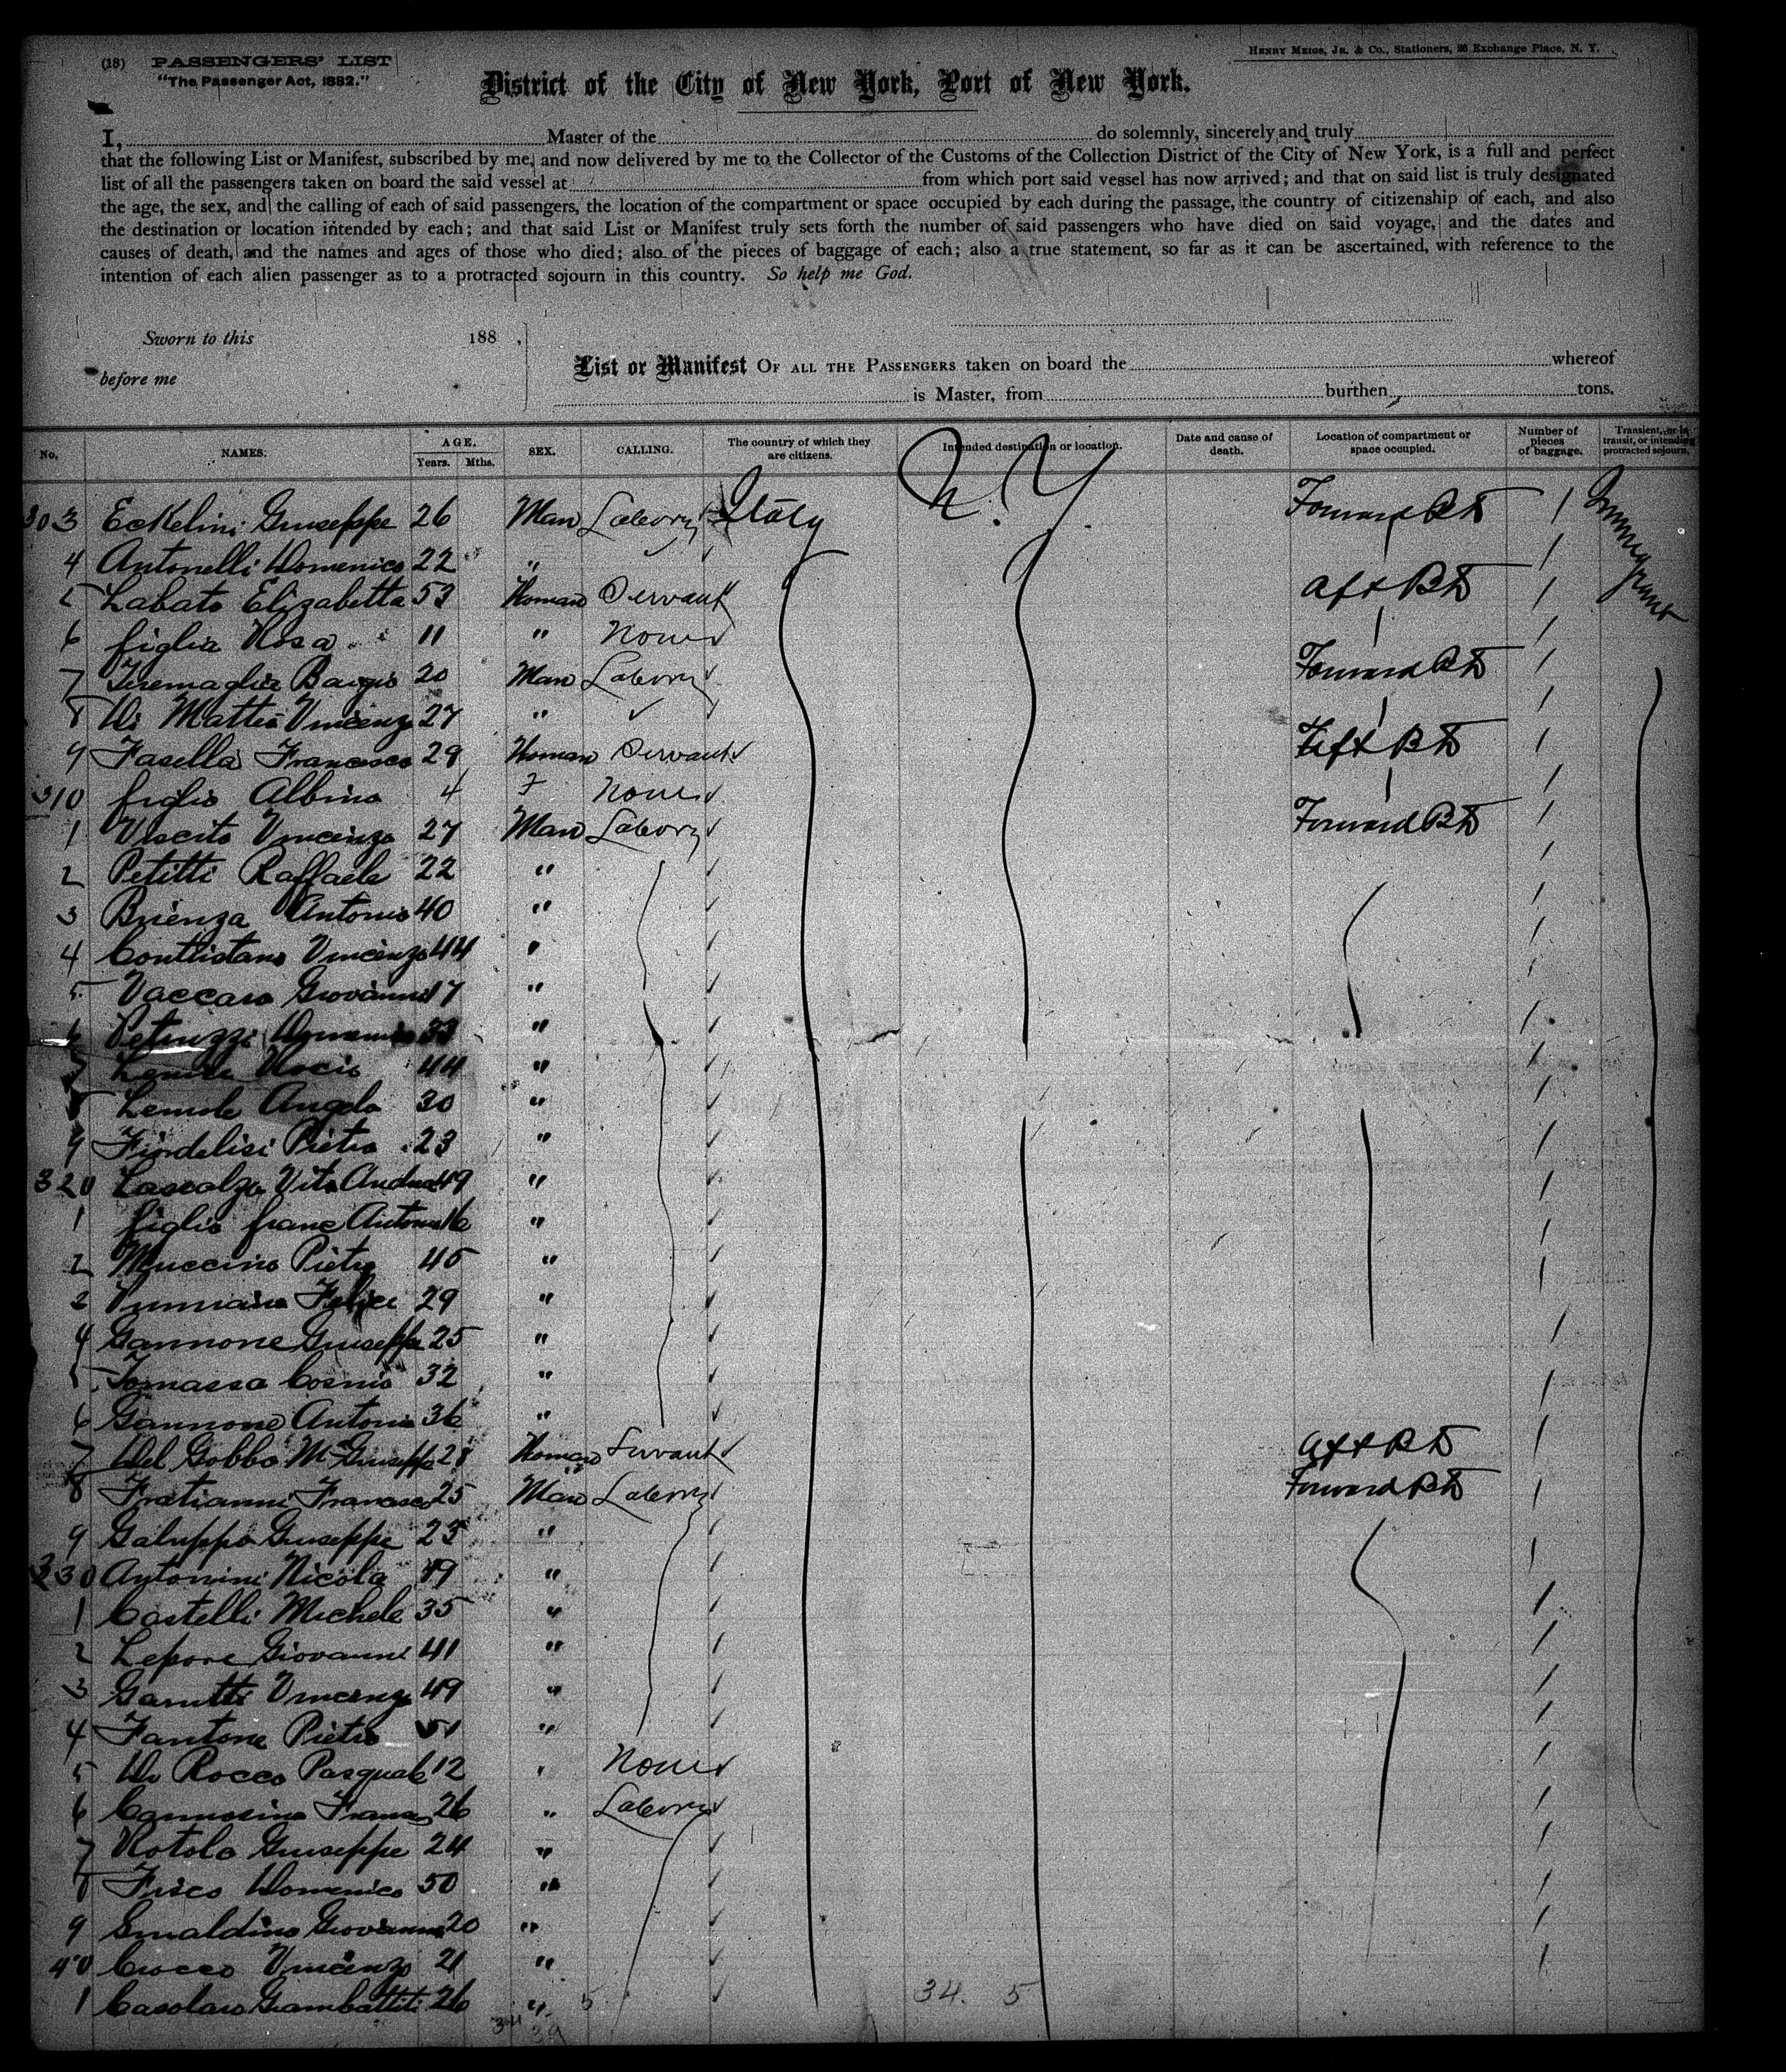 (18) PASSENGERS' LIST
HENRY MEIGS, JR. & CO., Stationers, 26 Exchange Place, N. Y.
"The Passenger Act, 1882."
District of the City of New York, Port of New York.
I, Master of the do solemnly, sincerely and truly
that the following List or Manifest, subscribed by me, and now delivered by me to the Collector of the Customs of the Collection District of the City of New York, is a full and perfect
list of all the passengers taken on board the said vessel at from which port said vessel has now arrived; and that on said list is truly designated
the age, the sex, and the calling of each of said passengers, the location of the compartment or space occupied by each during the passage, the country of citizenship of each, and also
the destination or location intended by each; and that said List or Manifest truly sets forth the number of said passengers who have died on said voyage, and the dates and
causes of death, and the names and ages of those who died; also of the pieces of baggage of each; also a true statement, so far as it can be ascertained, with reference to the
intention of each alien passenger as to a protracted sojourn in this country. So help me God.
Sworn to this 188 ,
before me
List or Manifest OF ALL THE PASSENGERS taken on board the whereof
is Master, from burthen tons.
No. NAMES. AGE. Years. Mths. SEX. CALLING. The country of which they are citizens. Intended destination or location. Date and cause of death. Location of compartment or space occupied. Number of pieces of baggage. Transient, or in transit, or intending protracted sojourn.
303 Giuseppe 26 Man Italy N. Y. 1
4 Antonelli Domenico 22 " 1
5 Labato Elizabetta 53 Woman Servant Aft 1
6 figlia Rosa 11 " None 1
7 20 Man Forward 1
8 Di Matteo Vincenzo 27 " 1
9 Fasella Francesca 29 Woman Servant 1
310 figlio Albino 4 None 1
1 Viscito Vincenzo 27 Man Forward 1
2 Petitti Raffaele 22 " 1
3 Brienza Antonio 40 " 1
4 Vincenzo 44 " 1
5 Vaccaro Giovanni 17 " 1
6 Petruzzi 33 " 1
7 Rocco 44 " 1
8 Lemole Angelo 30 " 1
9 Fiordelisi Pietro 23 " 1
320 Lascalza Vito Andrea 49 " 1
1 figlio franc Antonio 16 " 1
2 Muccino Pietro 45 " 1
Felice 29 " 1
4 Gannone Giuseppe 25 " 1
5 Tomassa Cosmo 32 " 1
6 Gannone Antonio 36 " 1
7 Del Gobbo M Giuseppe Woman Servant Aft 1
8 Fratianni Francesco 25 Man Forward 1
9 Galuppo Giuseppe 25 " 1
330 Antonini Nicola " 1
1 Castelli Michele 35 " 1
2 Lepore Giovanni 41 " 1
3 Vincenzo 49 " 1
4 Fantone Pietro 51 " 1
5 Di Rocco Pasquale 12 " None 1
6 26 " 1
7 Rotolo Giuseppe 24 " 1
8 Domenico 50 " 1
9 Smaldino Giovanni 20 " 1
40 Crocco Vincenzo 21 " 1
1 Casolaro 26 "
34. 5